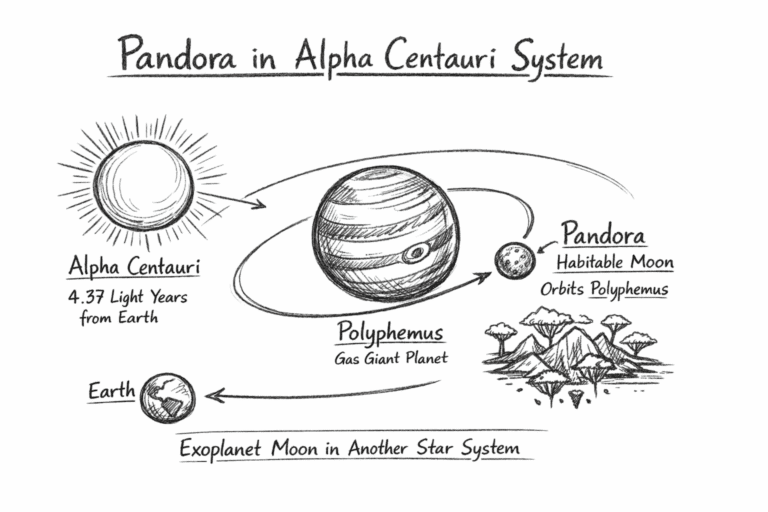 Pandora in Alpha Centauri System
Alpha Centauri
4.37 Light Years
from Earth
Pandora
Habitable Moon
Orbits Polyphemus
Polyphemus
Gas Giant Planet
Earth
Exoplanet Moon in Another Star System